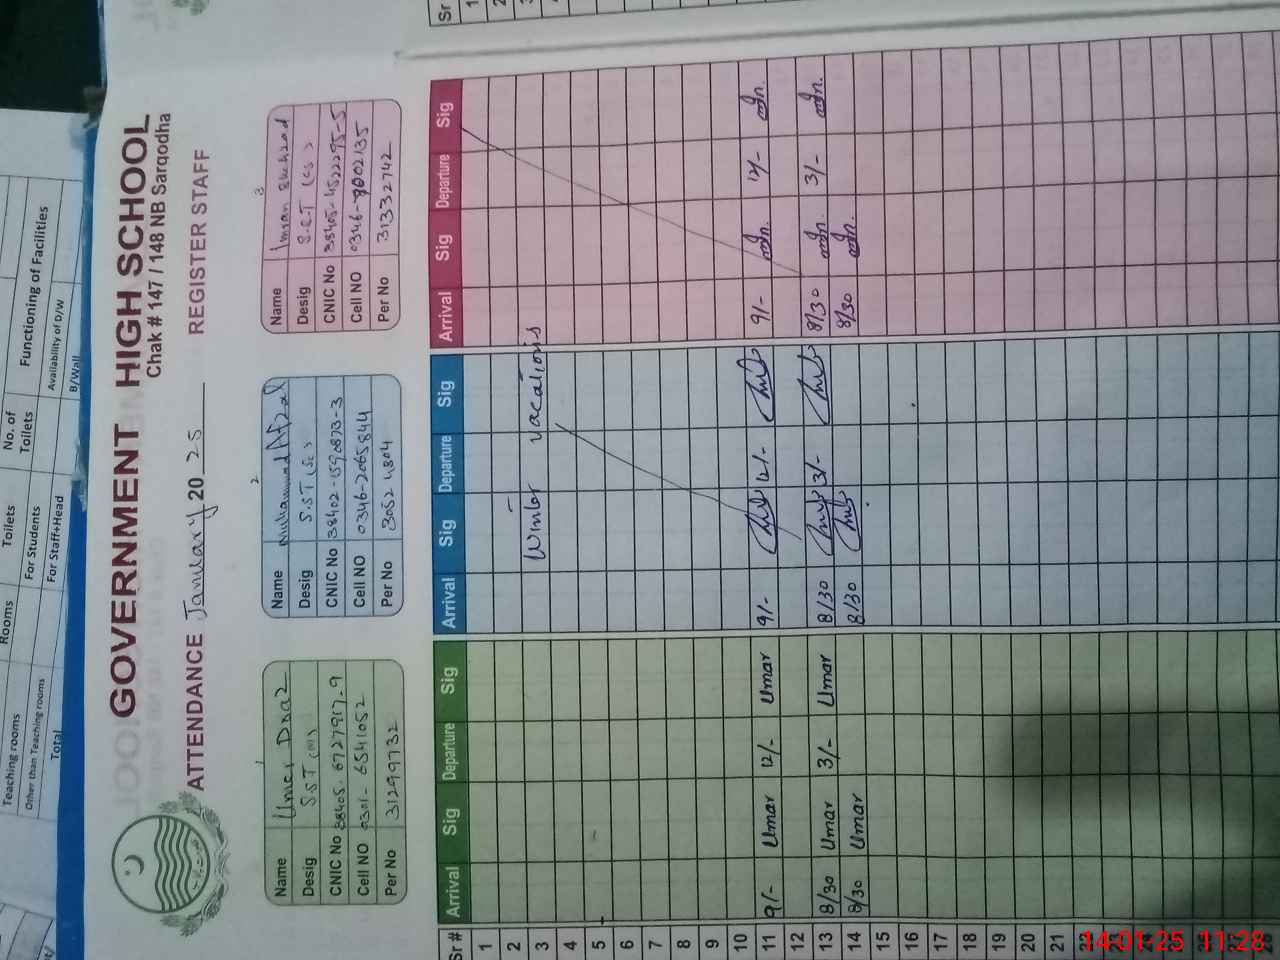 GOVERNMENT HIGH SCHOOL
Chak # 147 / 148 NB Sargodha
ATTENDANCE January 2025 REGISTER STAFF
1
Name Umer Draz
Desig S.S.T (M)
CNIC No 38405-6727917-9
Cell NO 0301-6541052
Per No 31299732
2
Name Muhammad Afzal
Desig S.S.T (Sc)
CNIC No 38402-1590873-3
Cell NO 0346-2065844
Per No 30524804
3
Name Imran Shehzad
Desig S.S.T (CS)
CNIC No 38405-4522295-5
Cell NO 0346-8002135
Per No 31332742
Sr # Arrival Sig Departure Sig Arrival Sig Departure Sig Arrival Sig Departure Sig
1
2
3 Winter vacations
4
5
6
7
8
9
10
11 9/- Umar 12/- Umar 9/- 12/- 9/- 12/-
12
13 8/30 Umar 3/- Umar 8/30 3/- 8/30 3/-
14 8/30 Umar 8/30 8/30
15
16
17
18
19
20
21
22
Teaching rooms Rooms Toilets No. of Toilets Functioning of Facilities
Other than Teaching rooms For Students Availability of D/W
Total For Staff+Head B/Wall
Sr
1
2
14-01-25 11:28